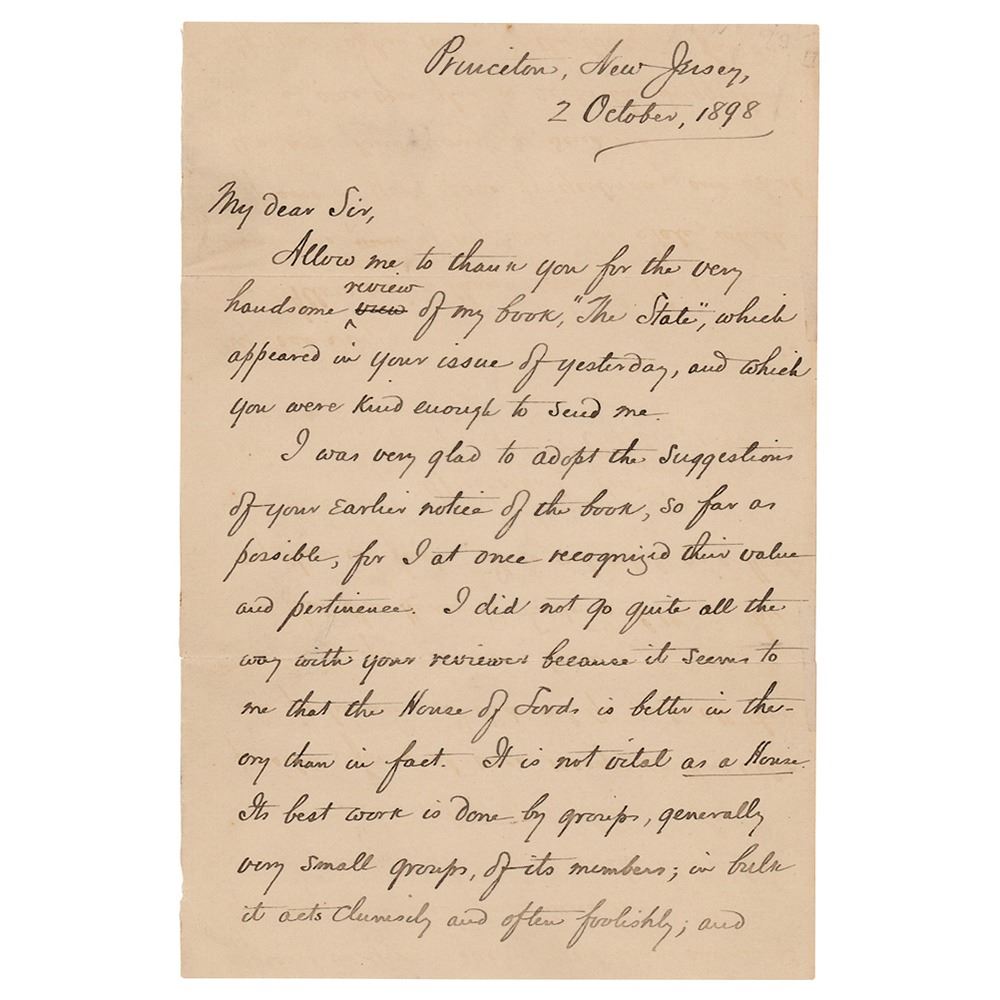 Princeton, New Jersey,
2 October, 1898
My dear Sir,
Allow me to thank you for the very
review
handsome view of my book, "The State", which
appeared in your issue of yesterday, and which
you were kind enough to send me.
I was very glad to adopt the suggestions
of your earlier notice of the book, so far as
possible, for I at once recognized their value
and pertinence. I did not go quite all the
way with your reviewer because it seems to
me that the House of Lords is better in the-
ory than in fact. It is not vital as a House.
Its best work is done by groups, generally
very small groups, of its members; in bulk
it acts clumsily and often foolishly; and